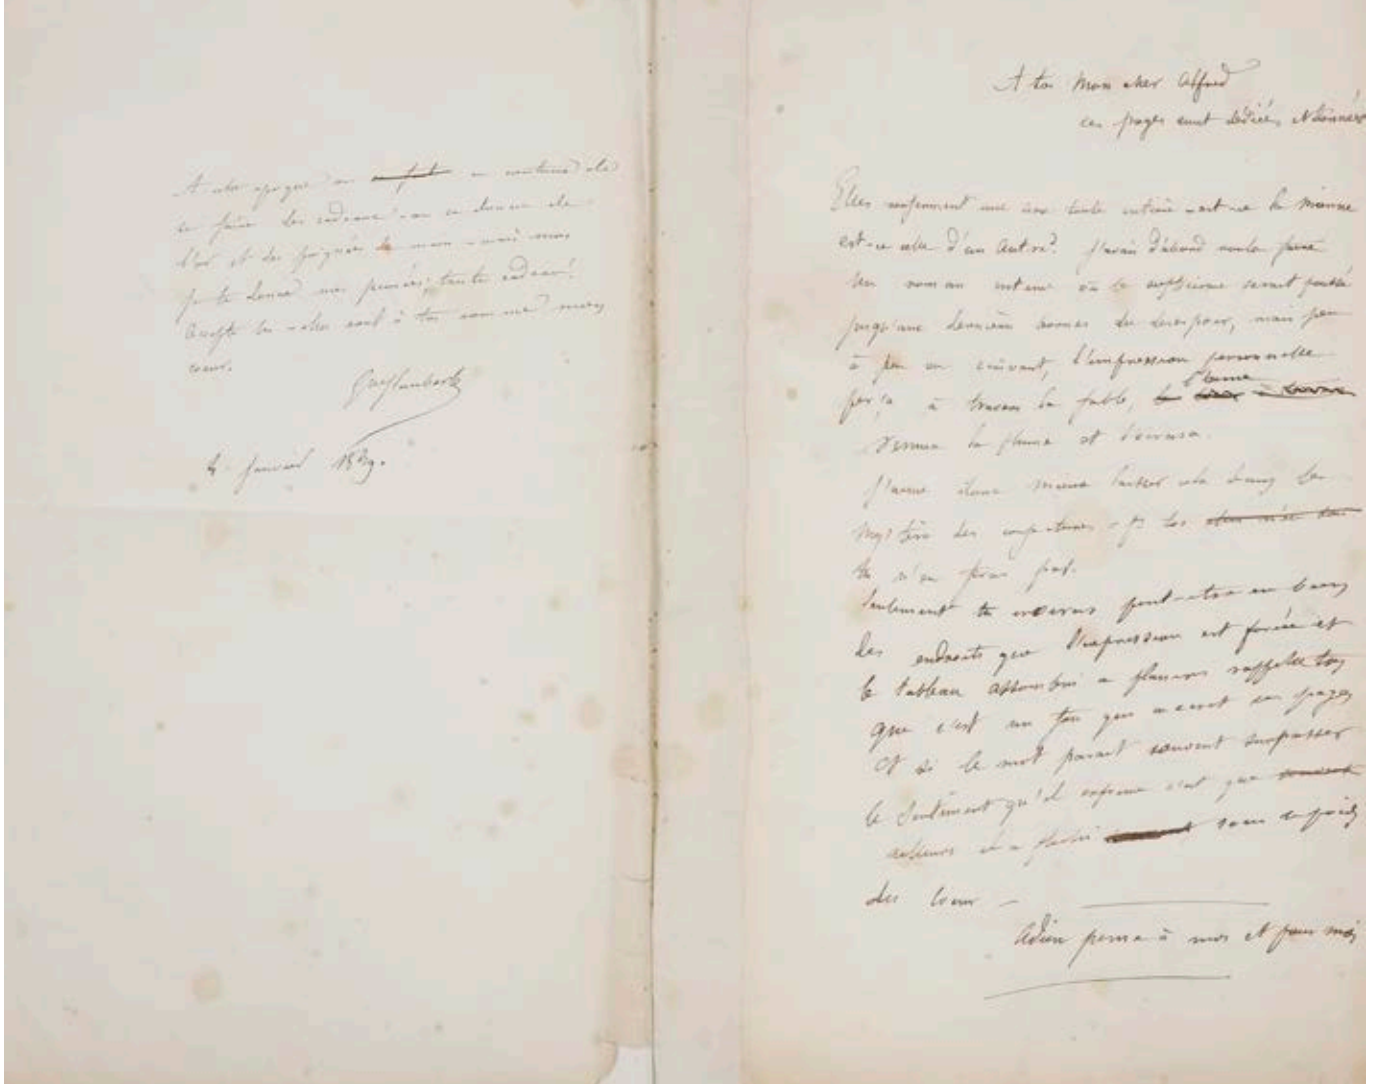 A cette époque on en fait on coutume de
se faire des cadeaux - on se donne de
l'or et des poignées de main - mais moi
je te donne mes pensées; triste cadeau!
Accepte les - elles sont à toi comme mon
coeur.
Gve Flaubert
4 Janvier 1839.
A toi mon cher Alfred
ces pages sont dédiées et données
Elles renferment une âme toute entière - est-ce la mienne
est-ce celle d'un autre? J'avais d'abord voulu faire
un roman intime où le scepticisme serait poussé
jusqu'aux dernières bornes du désespoir, mais peu
à peu en écrivant, l'impression personnelle
perça à travers la fable, l'âme
remua la plume et l'écrasa.
J'aime donc mieux laisser cela dans le
mystère des conjectures - pr toi
tu n'en feras pas.
Seulement tu croiras peut-être en bien
des endroits que l'expression est forcée et
le tableau assombri à plaisir rappelle toi
que c'est un fou qui a écrit ces pages
et si le mot parait souvent surpasser
le sentiment qu'il exprime c'est que
ailleurs il a fléchi sous le poids
du coeur -
Adieu pense à moi et pour moi